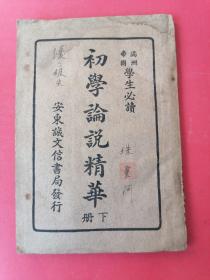 滿洲
帝國
學生必讀
初學論說精華
下册
安東誠文信書局發行